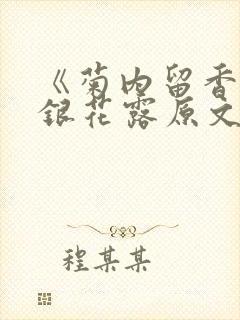 《菊内留香
银花露原文
程某某